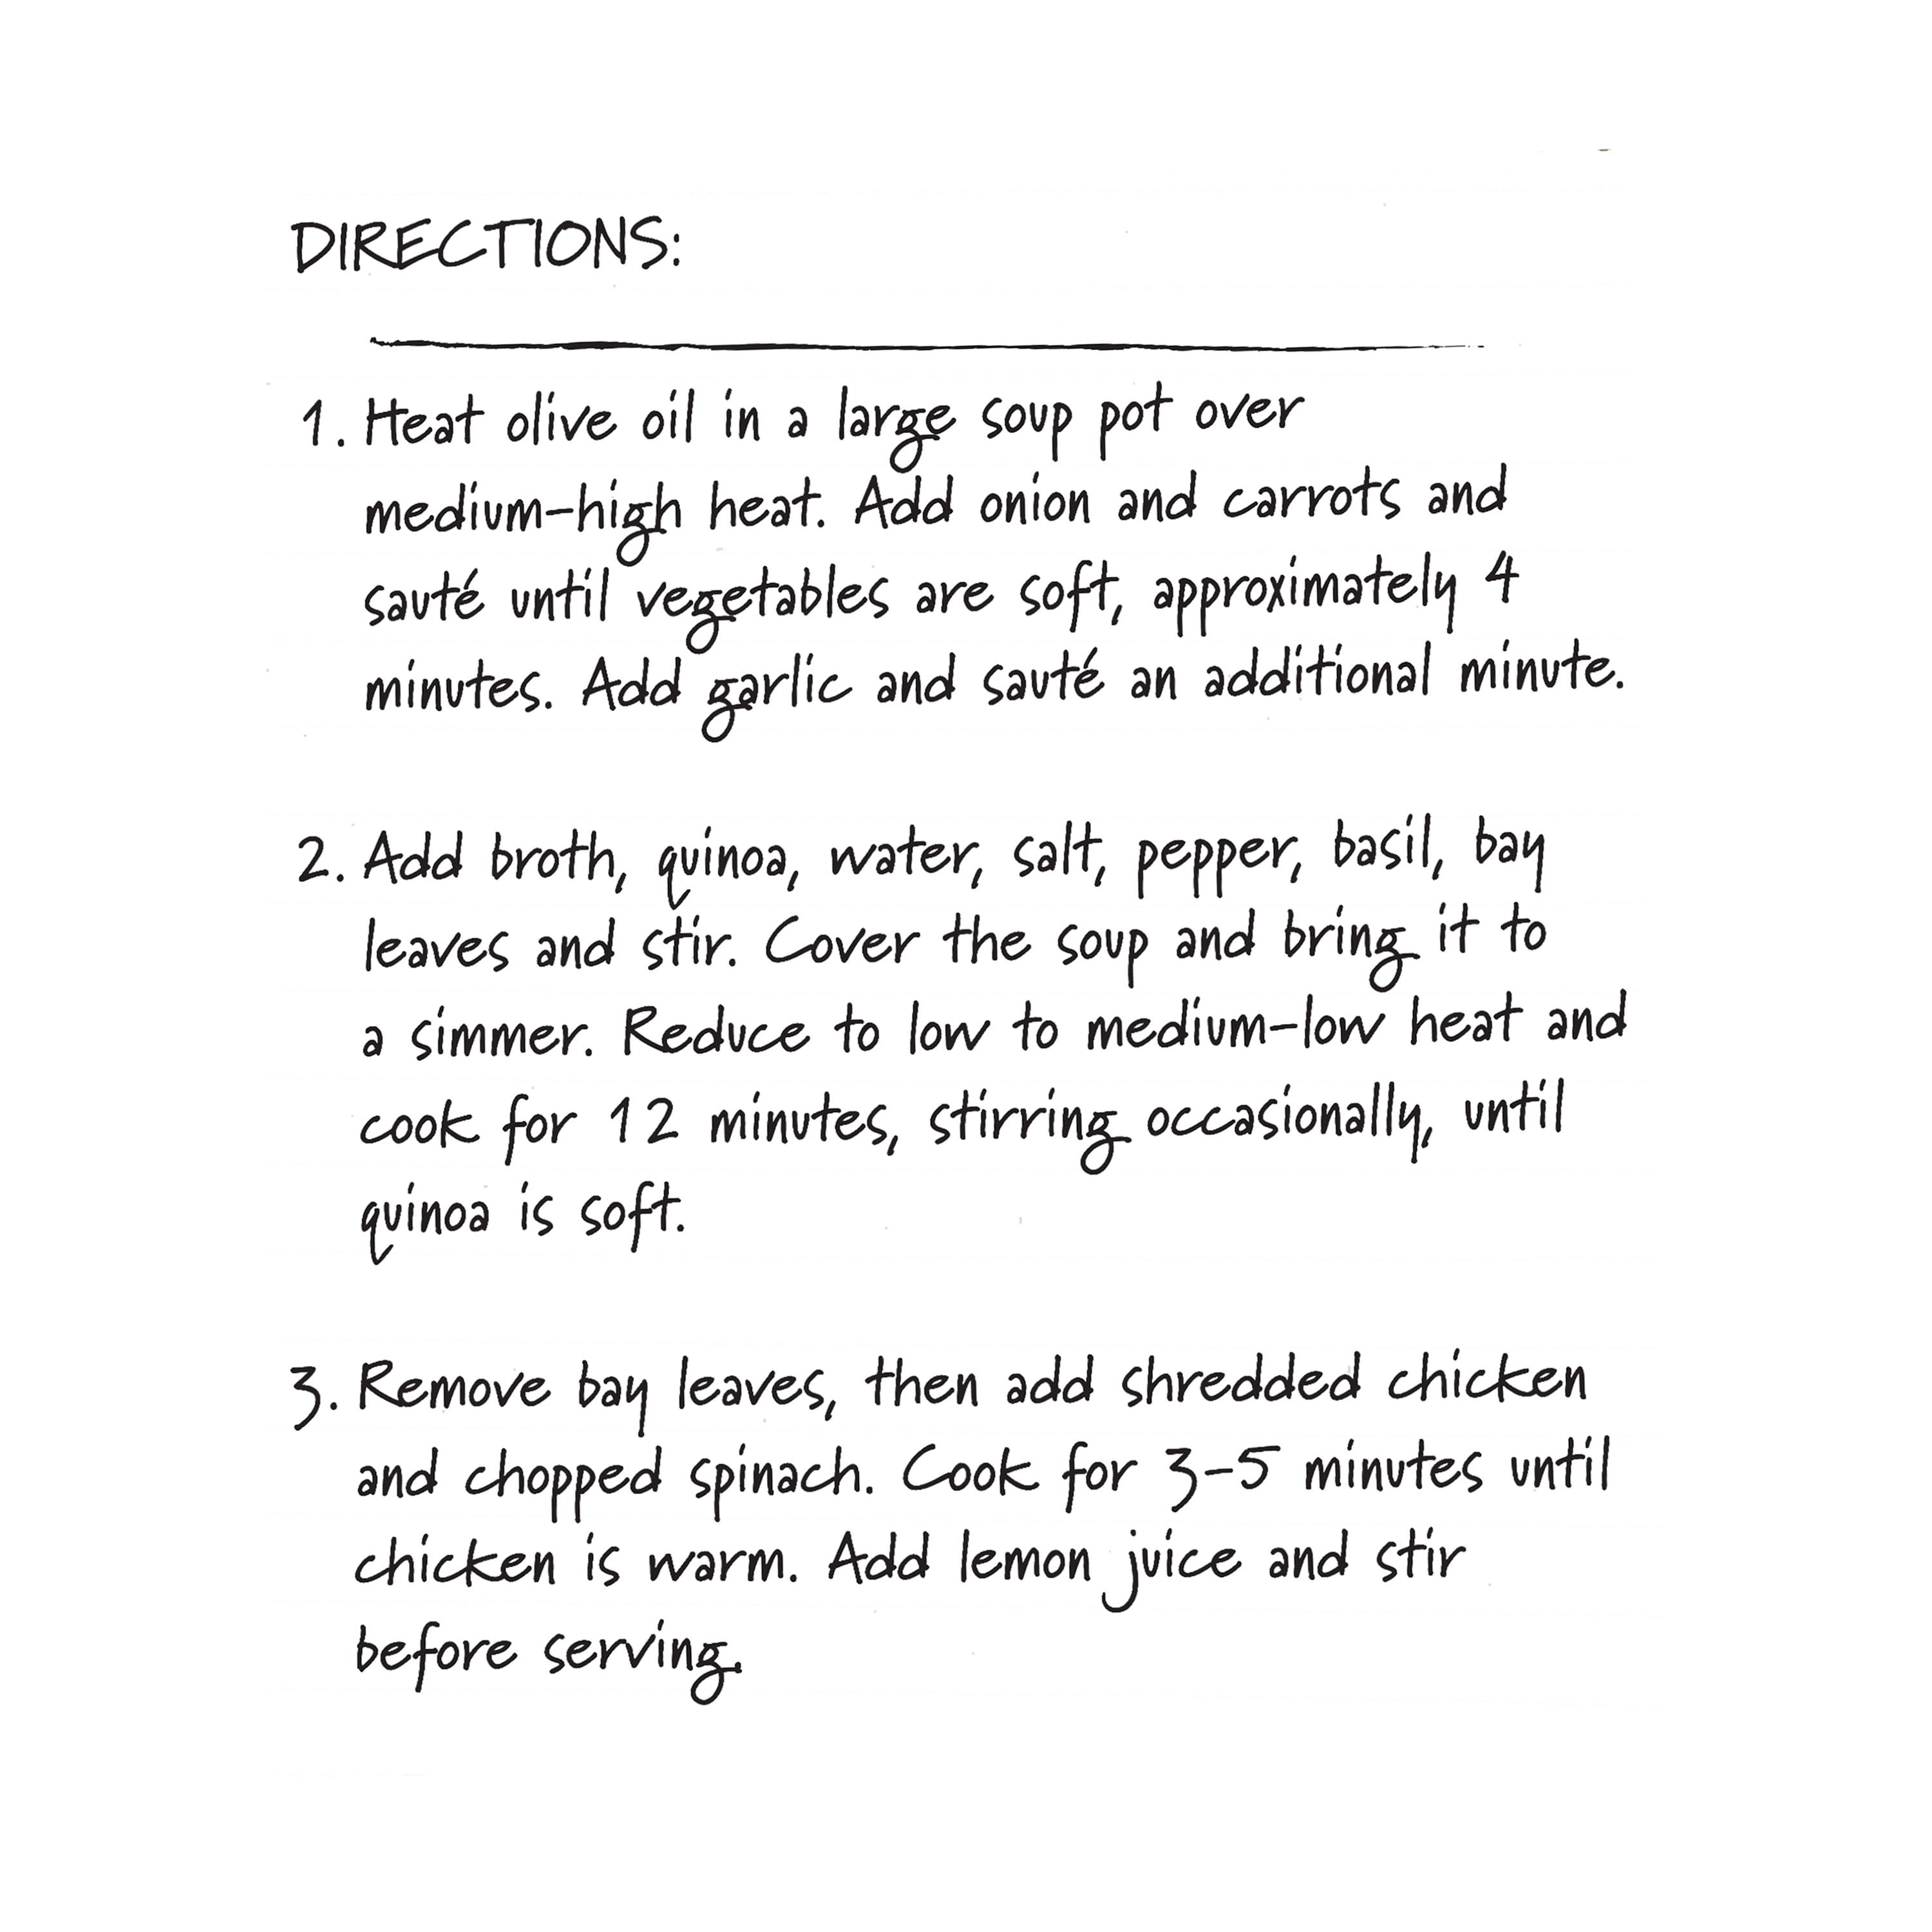 DIRECTIONS:
1. Heat olive oil in a large soup pot over
medium-high heat. Add onion and carrots and
sauté until vegetables are soft, approximately 4
minutes. Add garlic and sauté an additional minute.
2. Add broth, quinoa, water, salt, pepper, basil, bay
leaves and stir. Cover the soup and bring it to
a simmer. Reduce to low to medium-low heat and
cook for 12 minutes, stirring occasionally, until
quinoa is soft.
3. Remove bay leaves, then add shredded chicken
and chopped spinach. Cook for 3-5 minutes until
chicken is warm. Add lemon juice and stir
before serving.